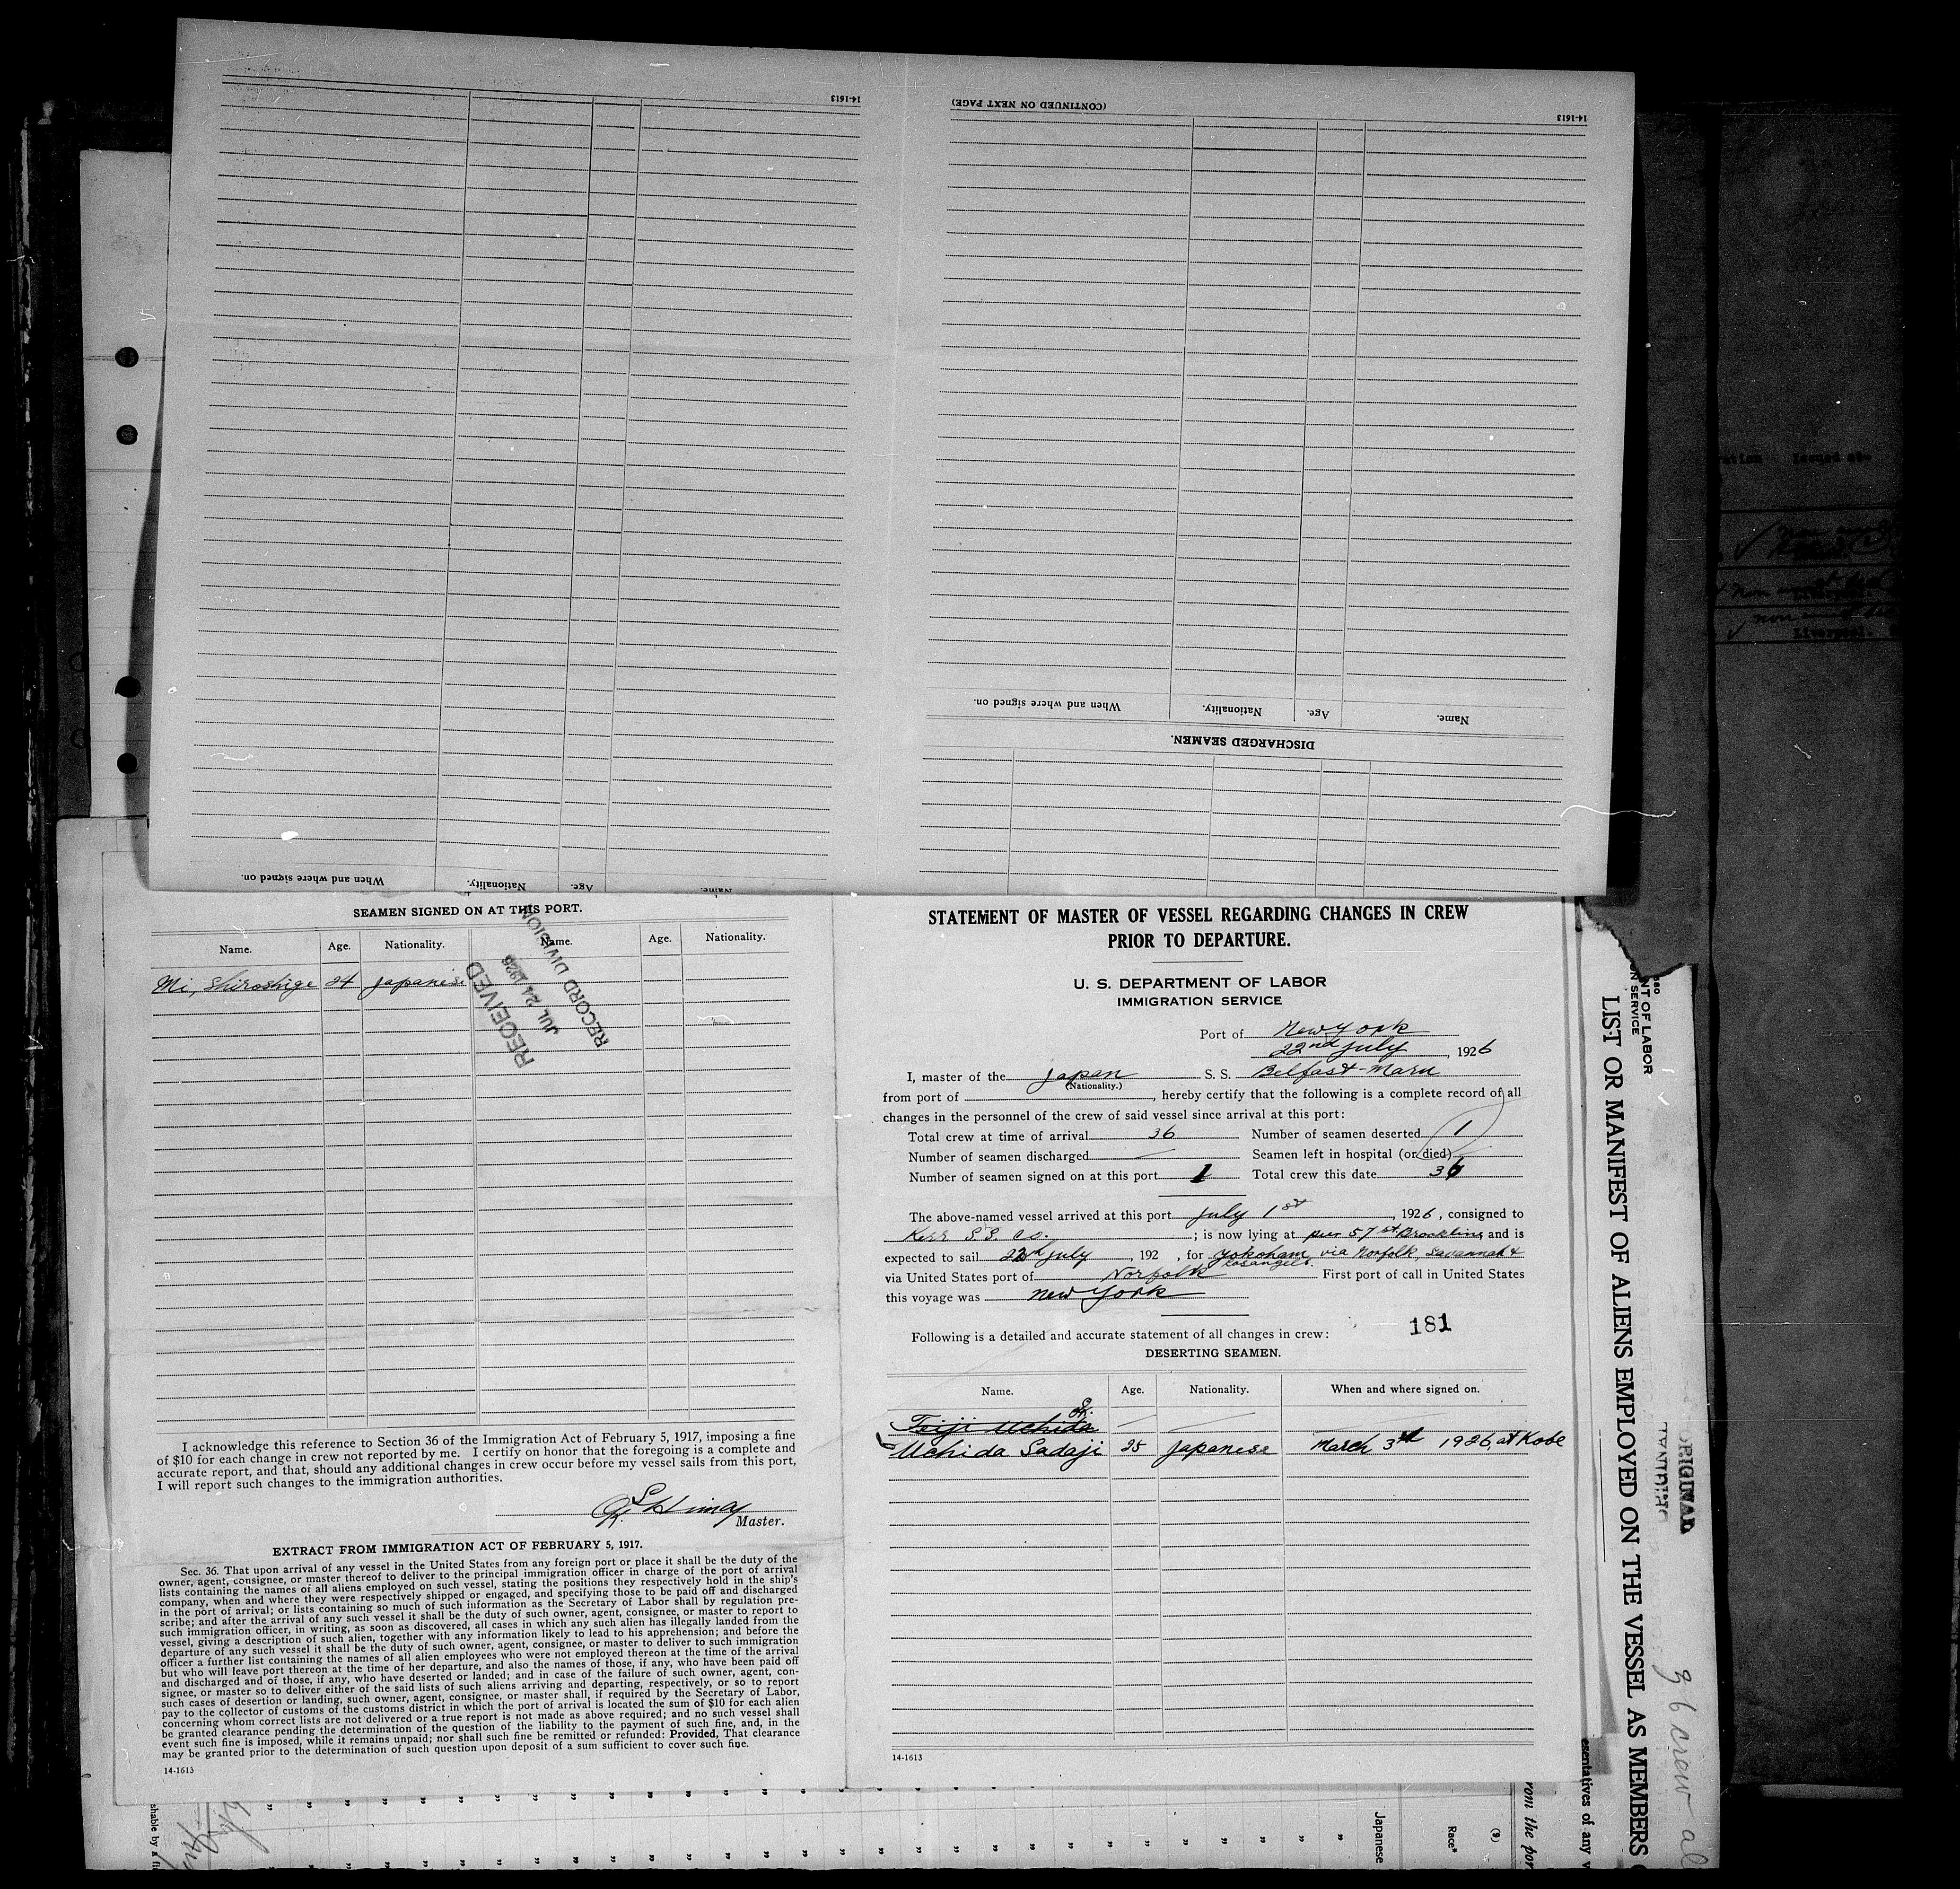 14-1613
(CONTINUED ON NEXT PAGE)
14-1613
When and where signed on.
Nationality.
Age.
Name.
DISCHARGED SEAMEN.
When and where signed on.
Nationality.
Age.
Name.
SEAMEN SIGNED ON AT THIS PORT.
Name. Age. Nationality. Name. Age. Nationality.
Mi, Shiroshige 24 Japanese
RECEIVED
JUL 24 1926
RECORD DIVISION
I acknowledge this reference to Section 36 of the Immigration Act of February 5, 1917, imposing a fine
of $10 for each change in crew not reported by me. I certify on honor that the foregoing is a complete and
accurate report, and that, should any additional changes in crew occur before my vessel sails from this port,
I will report such changes to the immigration authorities.
Master.
EXTRACT FROM IMMIGRATION ACT OF FEBRUARY 5, 1917.
Sec. 36. That upon arrival of any vessel in the United States from any foreign port or place it shall be the duty of the
owner, agent, consignee, or master thereof to deliver to the principal immigration officer in charge of the port of arrival
lists containing the names of all aliens employed on such vessel, stating the positions they respectively hold in the ship's
company, when and where they were respectively shipped or engaged, and specifying those to be paid off and discharged
in the port of arrival; or lists containing so much of such information as the Secretary of Labor shall by regulation pre-
scribe; and after the arrival of any such vessel it shall be the duty of such owner, agent, consignee, or master to report to
such immigration officer, in writing, as soon as discovered, all cases in which any such alien has illegally landed from the
vessel, giving a description of such alien, together with any information likely to lead to his apprehension; and before the
departure of any such vessel it shall be the duty of such owner, agent, consignee, or master to deliver to such immigration
officer a further list containing the names of all alien employees who were not employed thereon at the time of the arrival
but who will leave port thereon at the time of her departure, and also the names of those, if any, who have been paid off
and discharged and of those, if any, who have deserted or landed; and in case of the failure of such owner, agent, con-
signee, or master so to deliver either of the said lists of such aliens arriving and departing, respectively, or so to report
such cases of desertion or landing, such owner, agent, consignee, or master shall, if required by the Secretary of Labor,
pay to the collector of customs of the customs district in which the port of arrival is located the sum of $10 for each alien
concerning whom correct lists are not delivered or a true report is not made as above required; and no such vessel shall
be granted clearance pending the determination of the question of the liability to the payment of such fine, and, in the
event such fine is imposed, while it remains unpaid; nor shall such fine be remitted or refunded: Provided, That clearance
may be granted prior to the determination of such question upon deposit of a sum sufficient to cover such fine.
14-1613
STATEMENT OF MASTER OF VESSEL REGARDING CHANGES IN CREW
PRIOR TO DEPARTURE.
U. S. DEPARTMENT OF LABOR
IMMIGRATION SERVICE
Port of New York
22nd July, 1926
I, master of the Japan S. S. Belfast-Maru
(Nationality.)
from port of , hereby certify that the following is a complete record of all
changes in the personnel of the crew of said vessel since arrival at this port:
Total crew at time of arrival 36 Number of seamen deserted 1
Number of seamen discharged — Seamen left in hospital (or died)
Number of seamen signed on at this port 1 Total crew this date 36
The above-named vessel arrived at this port July 1st, 1926, consigned to
Kerr S.S. Co. ; is now lying at pier 57 st Brooklins and is
expected to sail 22nd July, 192 , for Yokoham via Norfolk, Savannah &
Losangels.
via United States port of Norfolk First port of call in United States
this voyage was New York
Following is a detailed and accurate statement of all changes in crew: 181
DESERTING SEAMEN.
Name. Age. Nationality. When and where signed on.
Teiji Uchida
Uchida Sadaji 25 Japanese March 3rd 1926, at Kobe
14-1613
NT OF LABOR
ON SERVICE
LIST OR MANIFEST OF ALIENS EMPLOYED ON THE VESSEL AS MEMBERS
ORIGINAL
36 crew al
esentatives of any v
rom the por
(9)
Race*
Japanese
shable by a fi
ration Issued at-